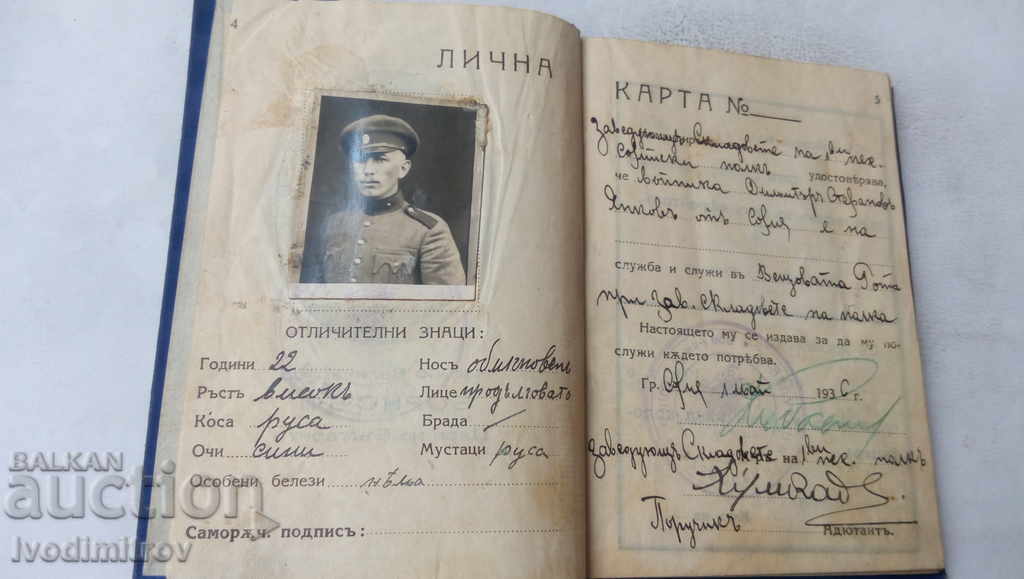 4
ЛИЧНА
ОТЛИЧИТЕЛНИ ЗНАЦИ:
Години 22
Носъ обикновенъ
Ръстъ високъ
Лице продълговато
Коса руса
Брада /
Очи сини
Мустаци руса
Особени белези нѣма
Саморѫч. подписъ:
5
КАРТА №
Завеждующъ Складовете на 1ви пех.
Софийски полкъ удостовѣрява,
че войника Димитъръ Стефановъ
Янковъ отъ София е на
служба и служи въ Вещовата Рота
при зав. складовете на полка
Настоящето му се издава за да му по-
служи кѫдето потрѣбва.
Гр. София май 1936 г.
завеждующъ Складовете на 1ви пех. полкъ
Поручикъ
Адютантъ:
BALKAN
auction
Ivodimitrov